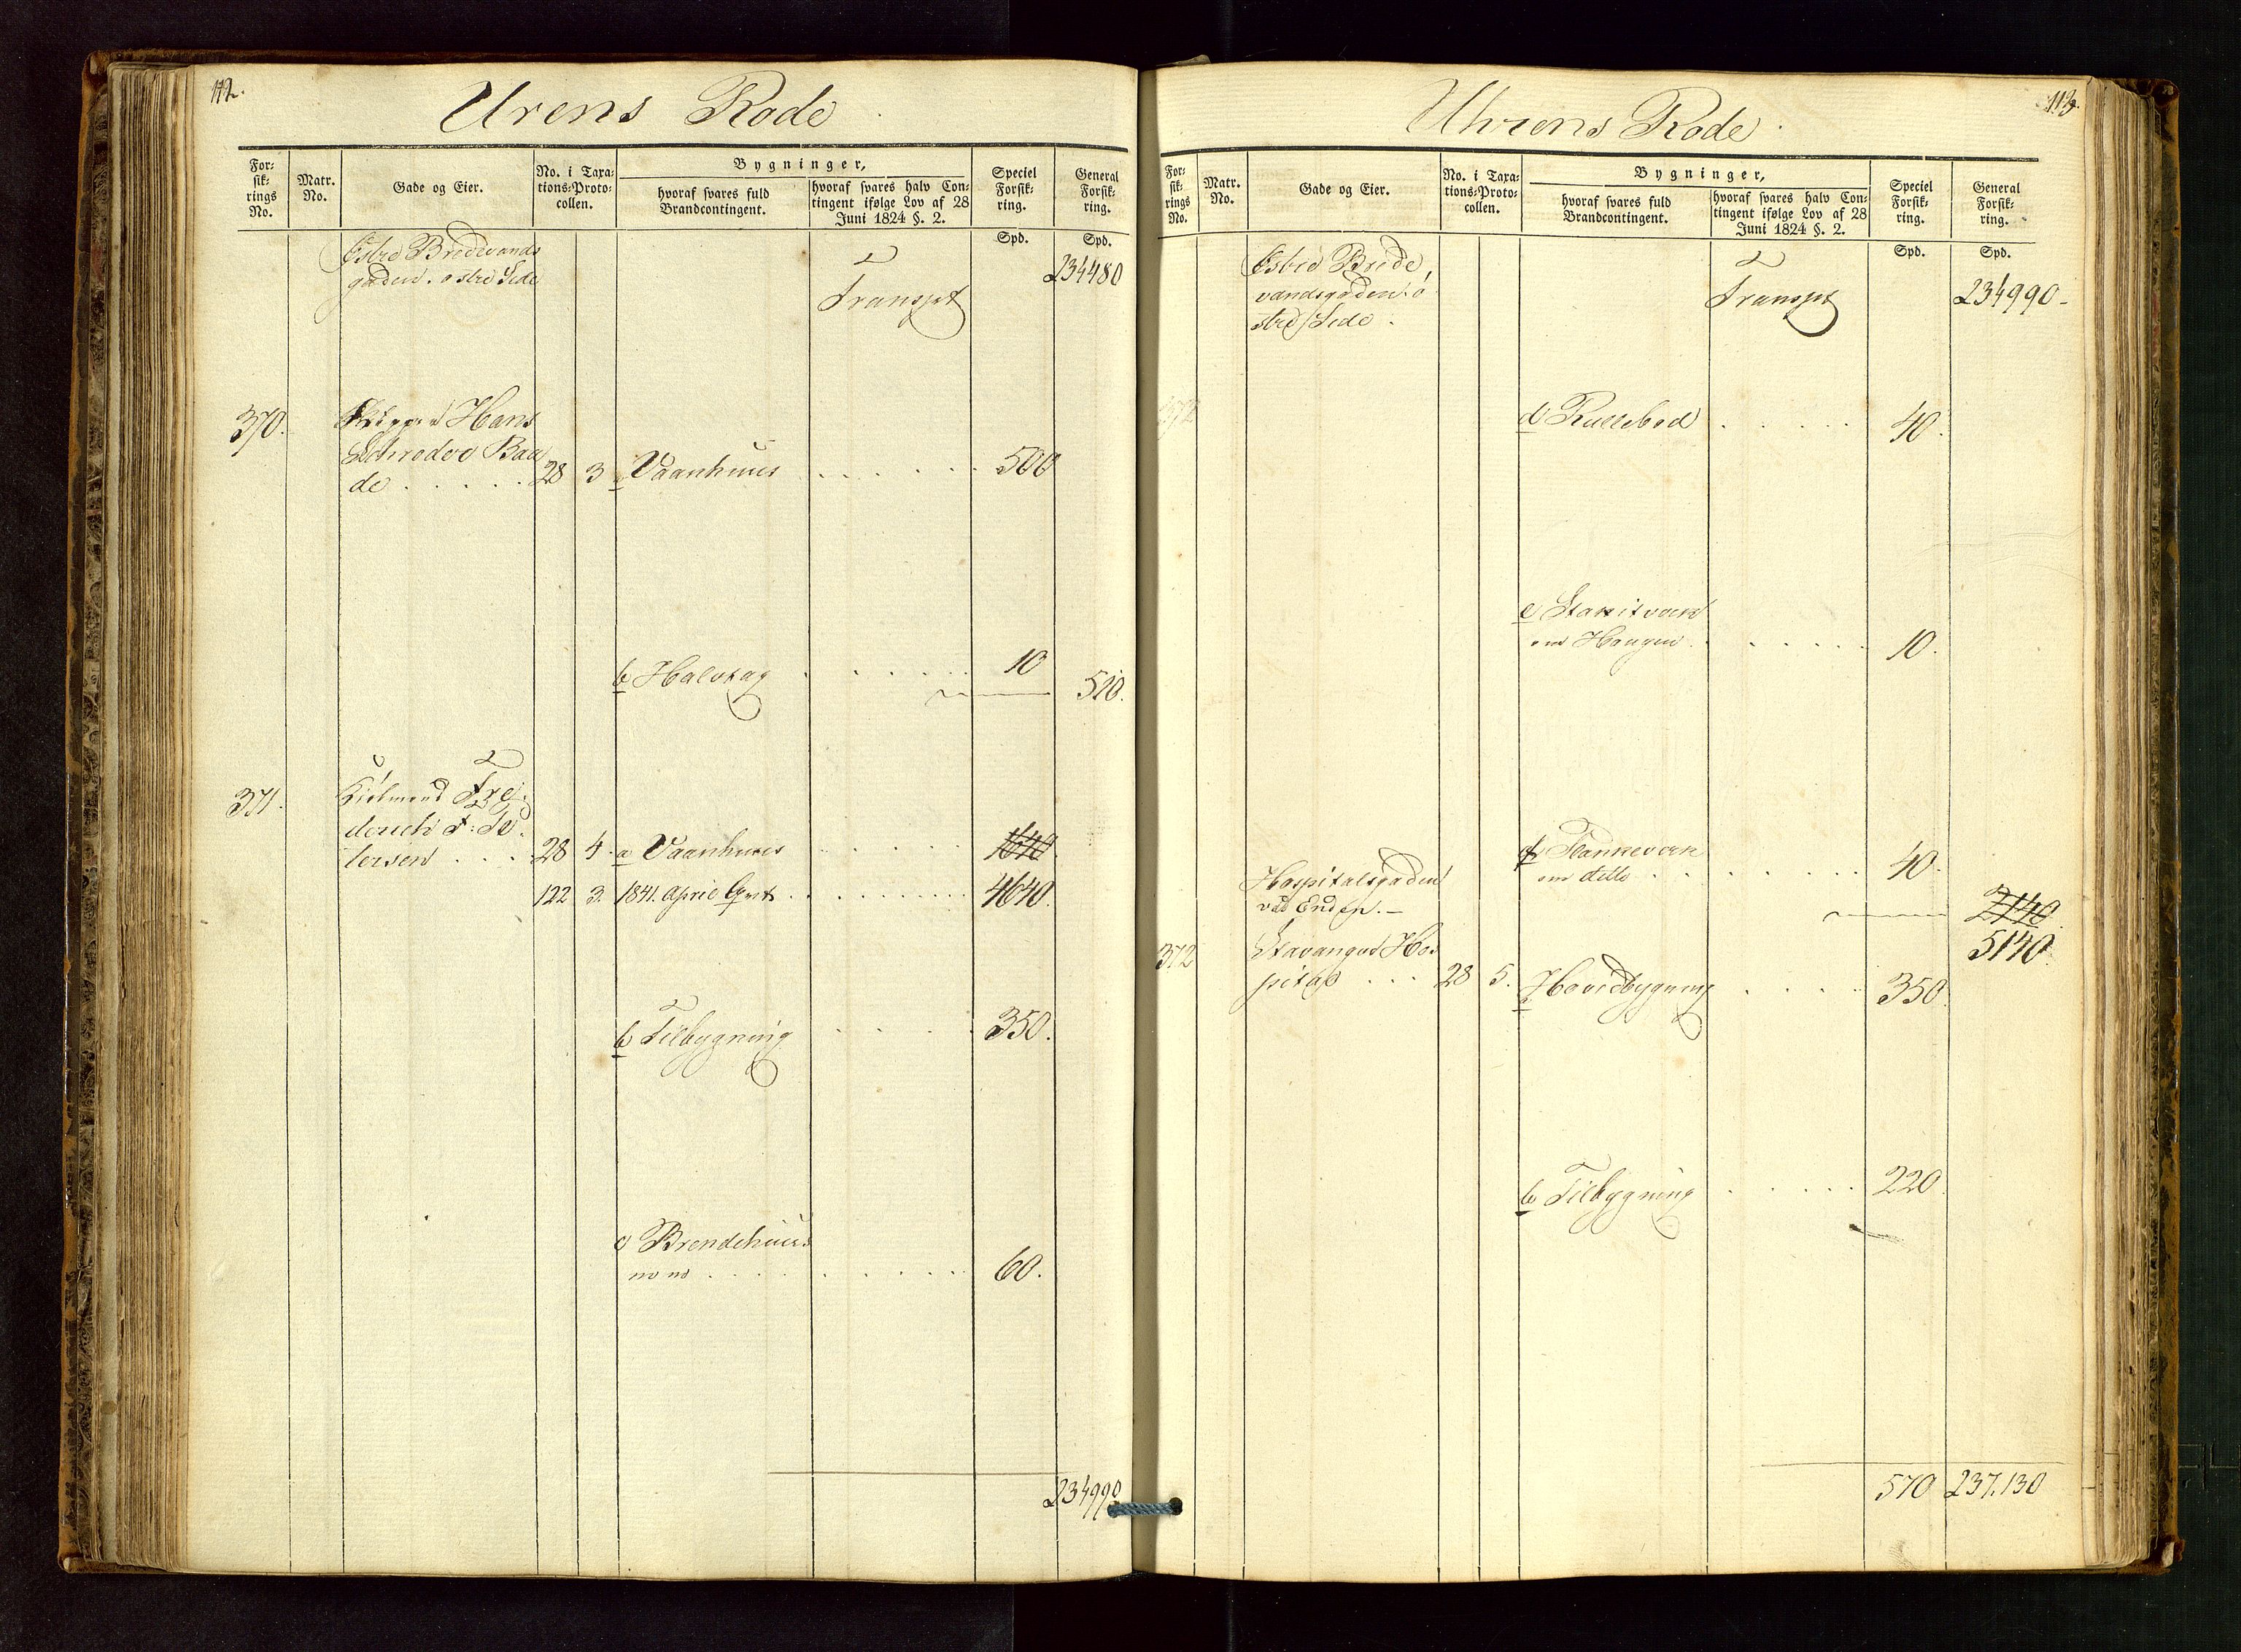 112.
Urens Rode
For=
sik=
rings
No.
Matr.
No.
Gade og Eier.
No. i Taxa=
tions=Proto=
collen.
Bygninger,
hvoraf svares fuld
Brandcontingent.
hvoraf svares halv Con=
tingent ifølge Lov af 28
Juni 1824 §. 2.
Speciel
Forsik=
ring.
General
Forsik=
ring.
Spd. Spd.
Østre Bredevands
gaden. østre Side
Transpt
234480
370.
Hans
Schrøder Baa
de . . . . . 28 3 a Vaanhuus . . . . . . 500
b Halvtag . . . . . 10
510.
371.
Kiøbmand Fre
derich T: Pe
tersen . . . 28 4. a Vaanhuus . . . . . 1640.
122 3. 1841. April . . . . . . . . 4640.
b Tilbygning . . . . 350.
c Brendehuus
. . . . . . . . . 60.
234990
113.
Uhrens Rode
For=
sik=
rings
No.
Matr.
No.
Gade og Eier.
No. i Taxa=
tions=Proto=
collen.
Bygninger,
hvoraf svares fuld
Brandcontingent.
hvoraf svares halv Con=
tingent ifølge Lov af 28
Juni 1824 §. 2.
Speciel
Forsik=
ring.
General
Forsik=
ring.
Spd. Spd.
Østre Brede,
vandsgaden. ø
stre Side.
Transpt
234990-
372
d Rullebod . . . . . 40.
e Stakitværk
om Haugen . . . . . . 10.
f Plankeværk
om ditto . . . . . . . 40.
Hospitalsgaden
ved Enden.-
2140.
5140.
372
Stavanger Hos
pital . . . 28 5. a Hovedbygning . . . . 350.
b Tilbygning . . . . . 220.
570 237.130